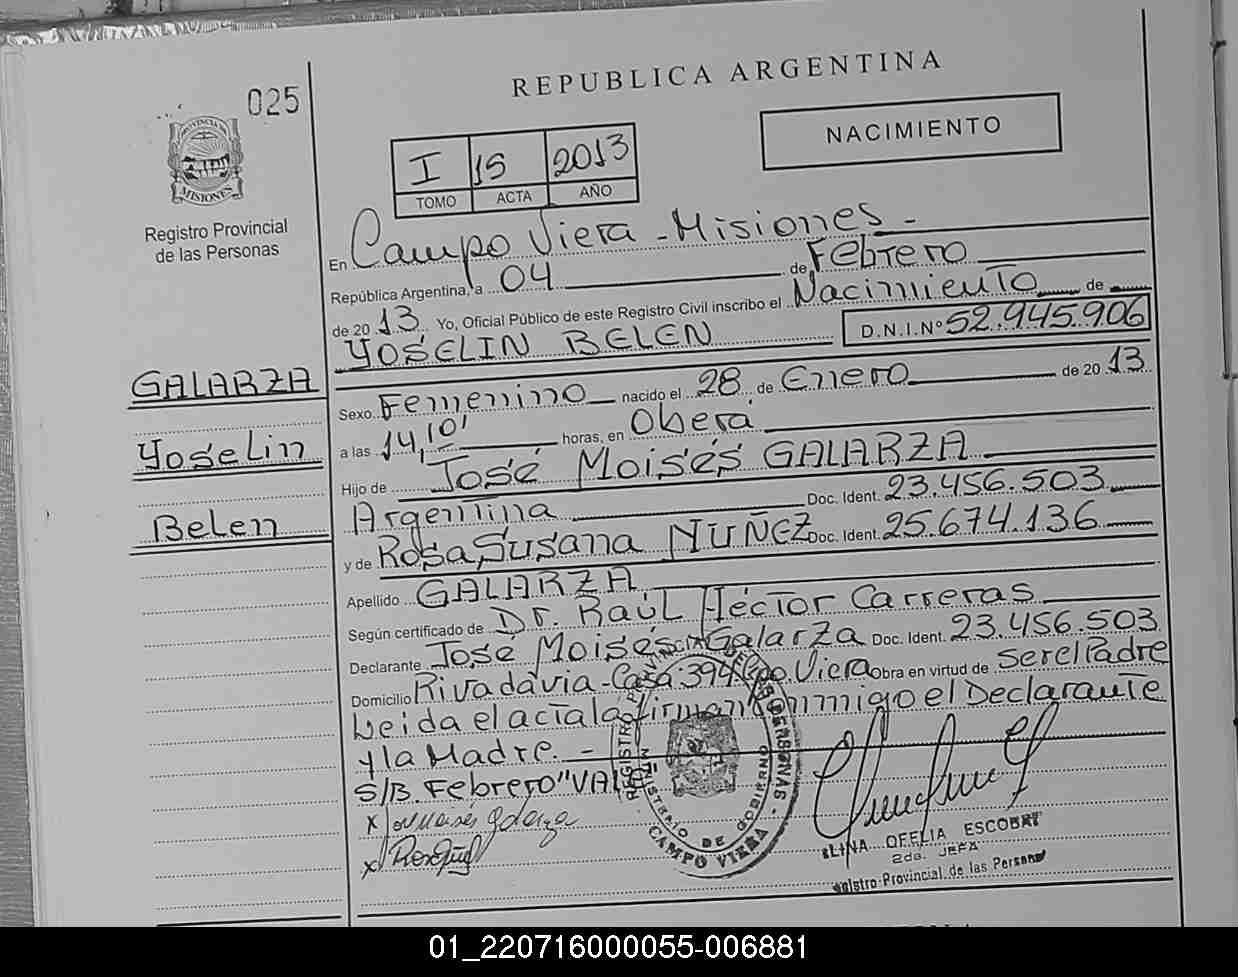 025
REPUBLICA ARGENTINA
PROVINCIA DE
MISIONES
Registro Provincial
de las Personas
I 15 2013
TOMO ACTA AÑO
NACIMIENTO
En Campo Viera - Misiones -
República Argentina, a 04 de Febrero
de 2013 Yo, Oficial Público de este Registro Civil inscribo el Nacimiento de
YOSELIN BELEN D.N.I.Nº 52.945.906
GALARZA
Yoselin
Belen
Sexo Femenino nacido el 28 de Enero de 2013
a las 14,10' horas, en Oberá
Hijo de José Moisés GALARZA
Argentina Doc. Ident. 23.456.503
y de Rosa Susana NUÑEZ Doc. Ident. 25.674.136
Apellido GALARZA
Según certificado de Dr. Raúl Héctor Carreras
Declarante José Moisés Galarza Doc. Ident. 23.456.503
Domicilio Rivadavia - Casa 394 Cpo. Viera Obra en virtud de ser el Padre
Leida el acta la firman conmigo el Declarante
y la Madre. -
S/B. Febrero "VALE"
x José Moisés Galarza
x
REGISTRO PROVINCIAL DE LAS PERSONAS
MINISTERIO DE GOBIERNO
CAMPO VIERA
OFELIA ESCOBAR
2da. JEFA
Registro Provincial de las Personas
01_220716000055-006881